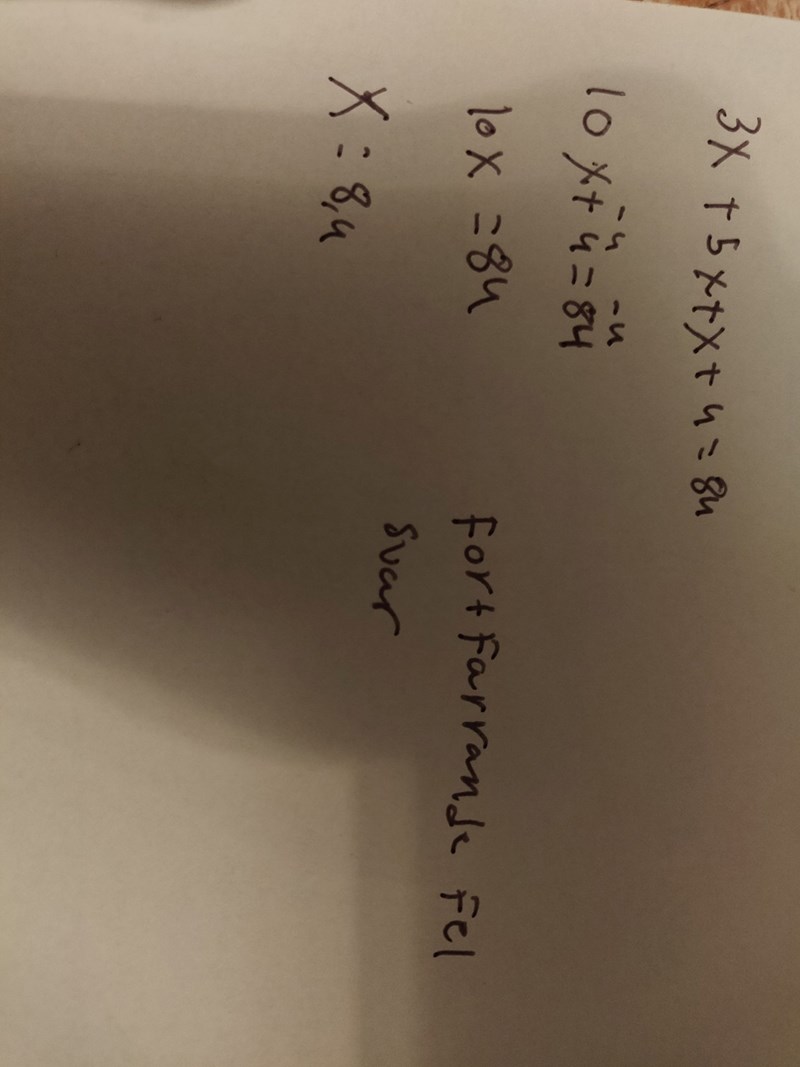 3x + 5x + x + 4 = 84
-4 -4
10x + 4 = 84
10x = 84
x = 8,4
Fortfarrande Fel
svar